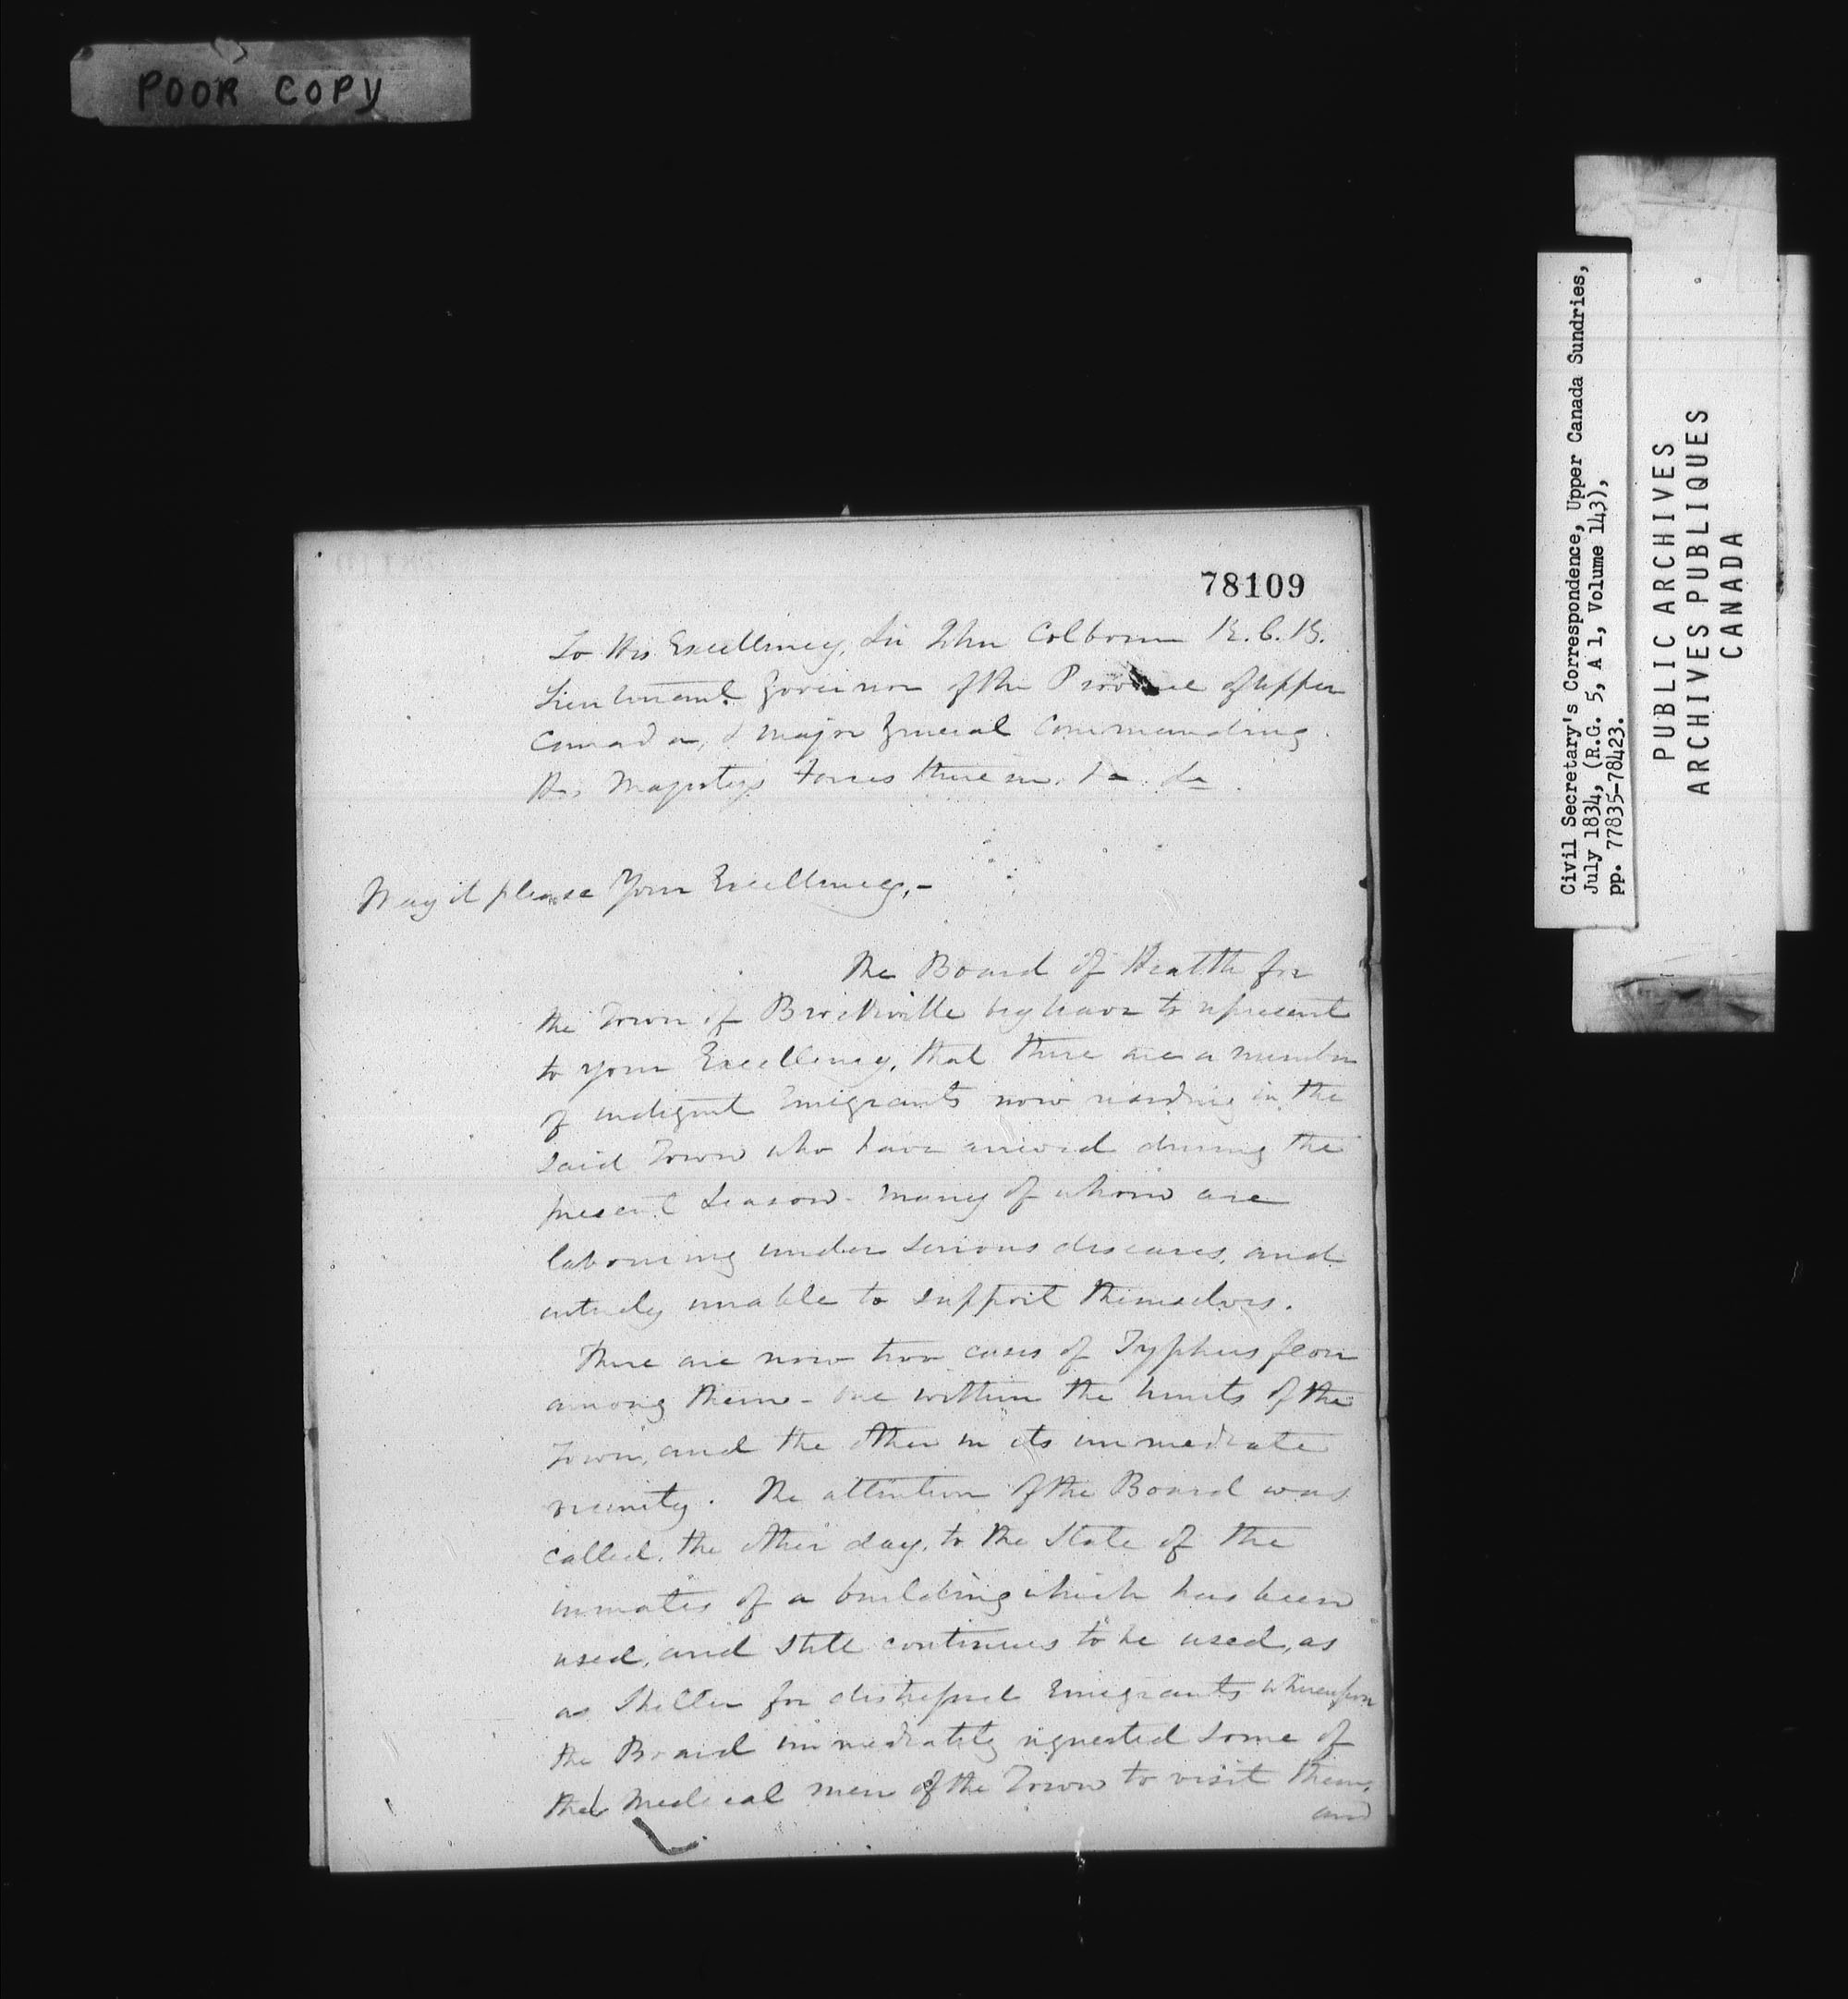 POOR COPY
78109
To His Excellency, Sir John Colborne K.C.B.
Lieutenant Governor of the Province of Upper
Canada, & Major General Commanding
His Majestys Forces therein. &c &c
May it please Your Excellency,-
The Board of Health for
the Town of Brockville beg leave to represent
to your Excellency, that there are a number
of indigent Emigrants now residing in the
said Town who have arrived during the
present Season - many of whom are
labouring under serious diseases, and
entirely unable to support themselves.
There are now two cases of Typhus fever
among them - one within the limits of the
Town, and the other in its immediate
vicinity. The attention of the Board was
called, the other day, to the State of the
inmates of a building which has been
used, and still continues to be used, as
as Shelter for distressed Emigrants whereupon
the Board immediately requested some of
the Medical men of the Town to visit them,
and
Civil Secretary's Correspondence, Upper Canada Sundries,
July 1834, (R.G. 5, A 1, Volume 143),
pp. 77835-78423.
PUBLIC ARCHIVES
ARCHIVES PUBLIQUES
CANADA